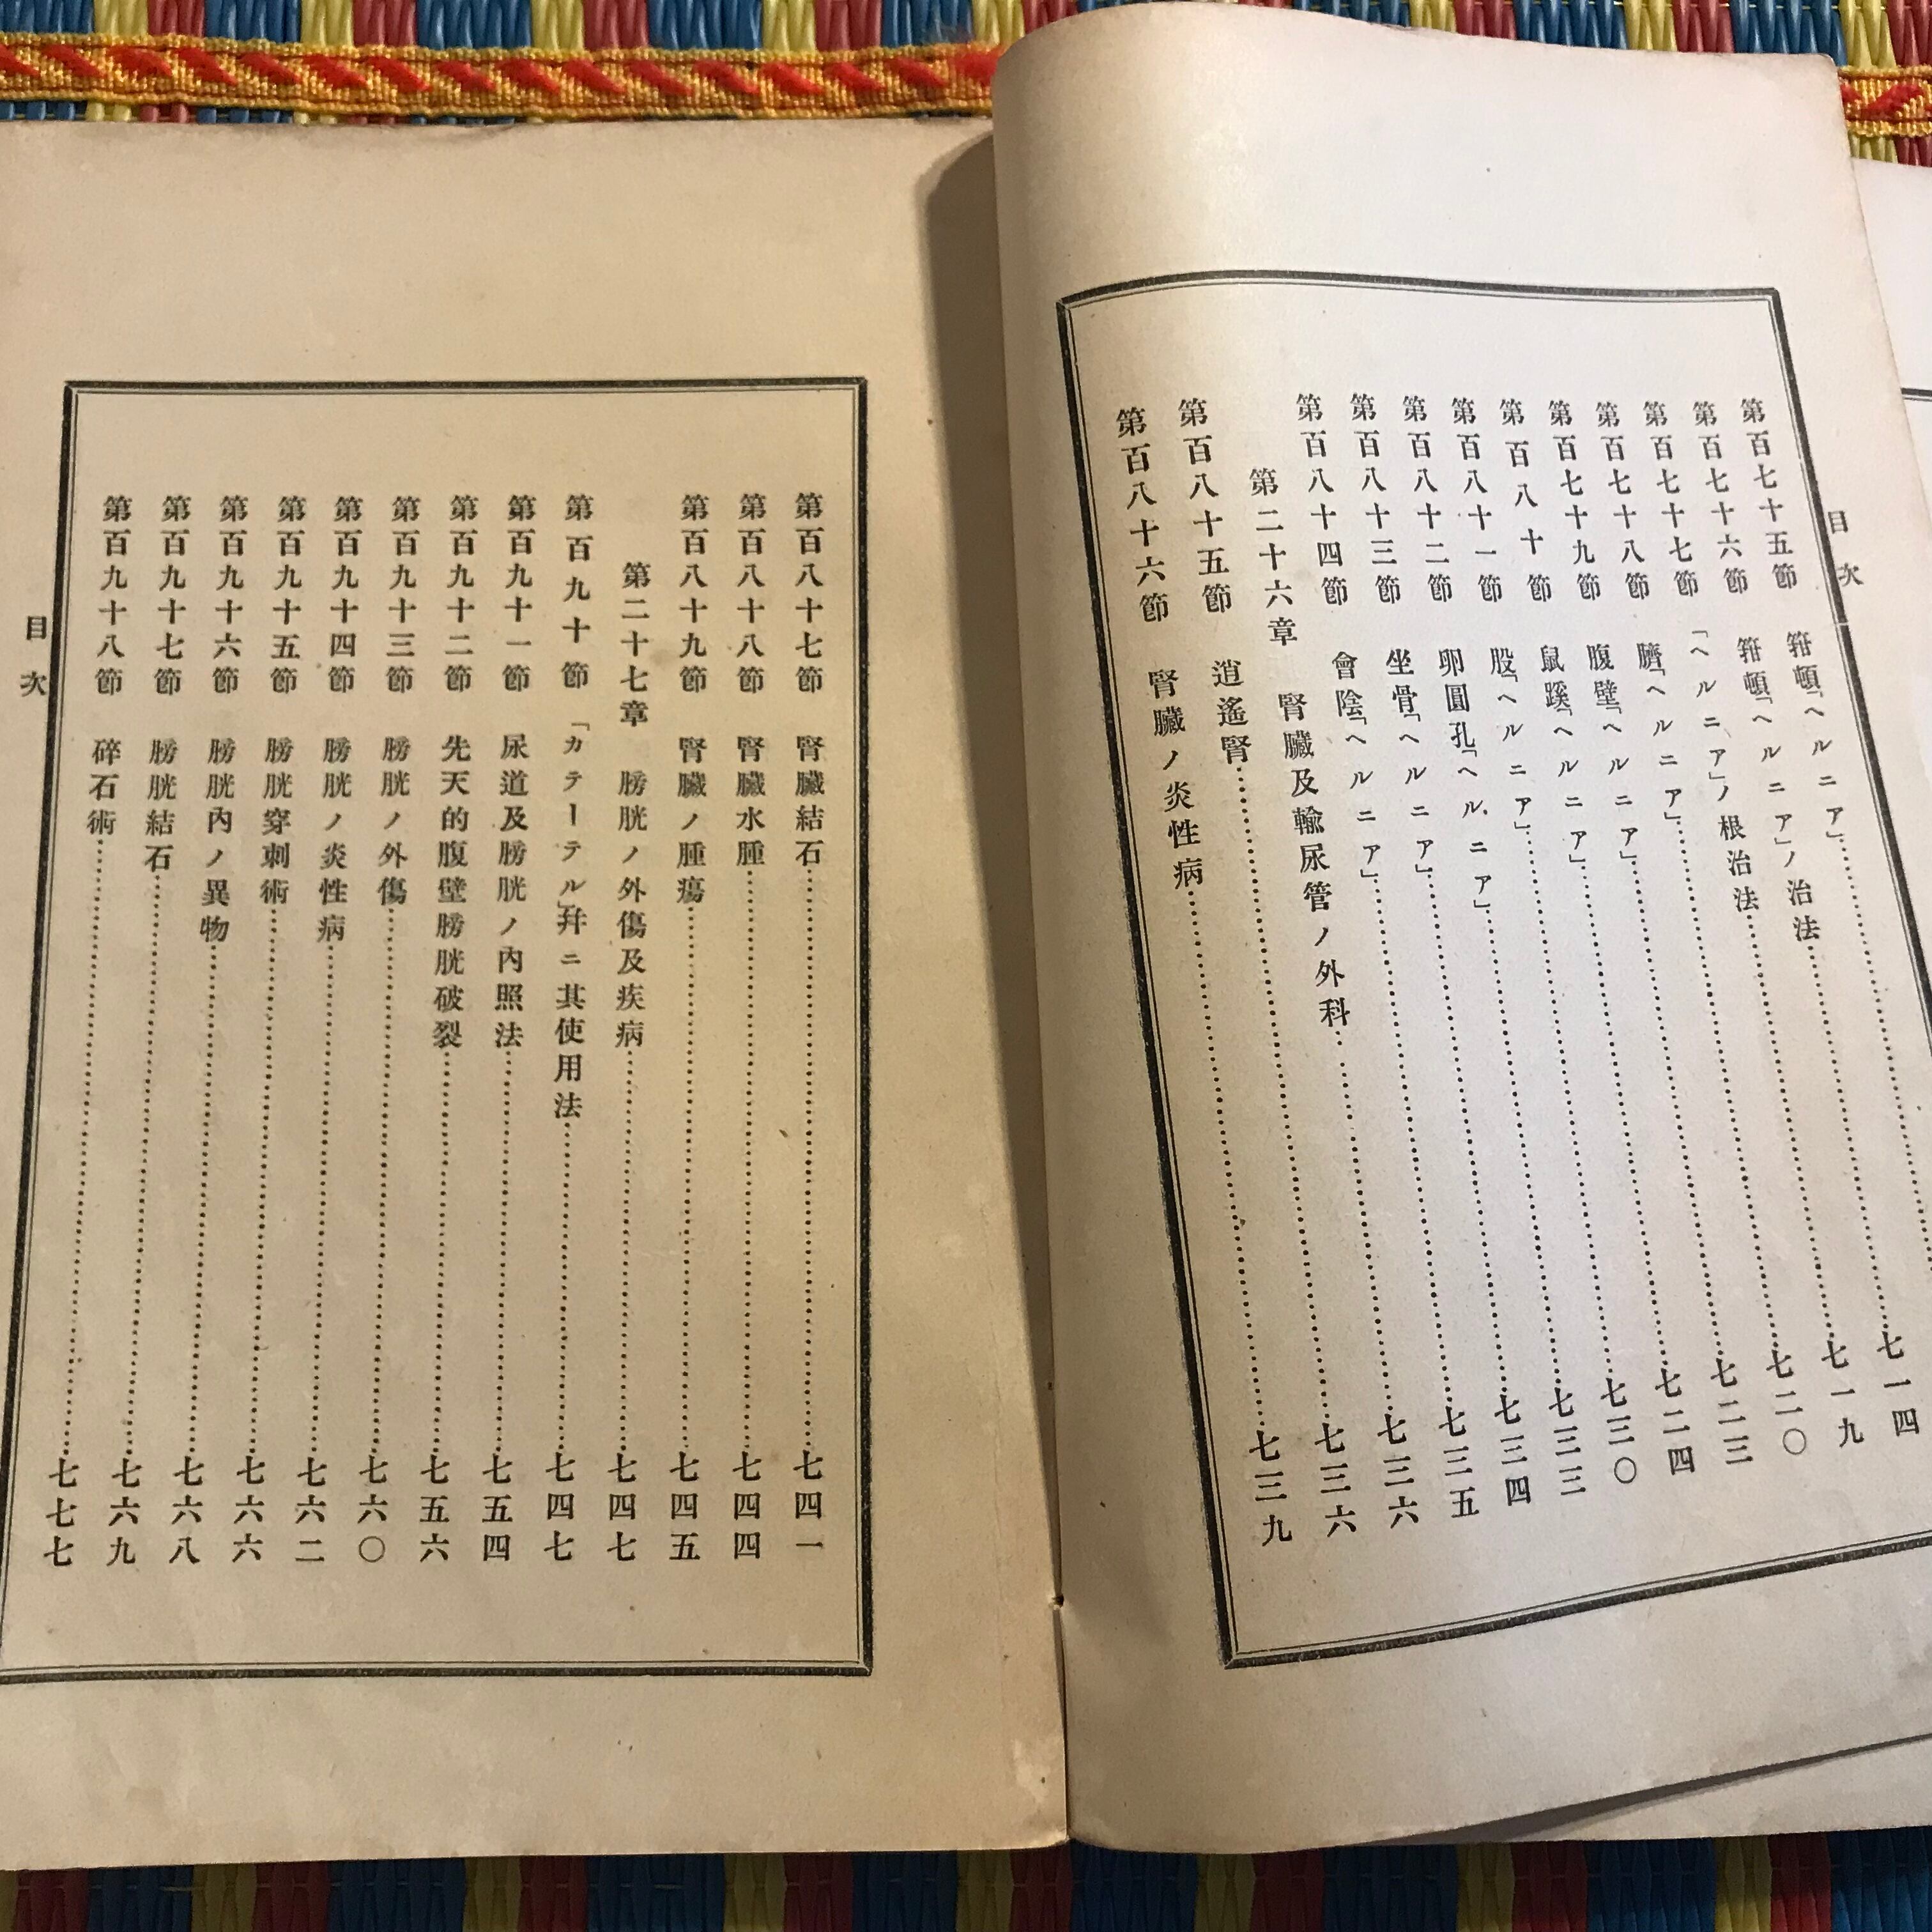 目次
第百七十五節 箝頓「ヘルニア」…………七一四
第百七十六節 箝頓「ヘルニア」ノ治法…………七一九
第百七十七節 「ヘルニア」ノ根治法…………七二〇
第百七十八節 臍「ヘルニア」…………七二三
第百七十九節 腹壁「ヘルニア」…………七二四
第百八十節 鼠蹊「ヘルニア」…………七三〇
第百八十一節 股「ヘルニア」…………七三三
第百八十二節 卵圓孔「ヘルニア」…………七三四
第百八十三節 坐骨「ヘルニア」…………七三五
第百八十四節 會陰「ヘルニア」…………七三六
第二十六章 腎臟及輸尿管ノ外科…………七三六
第百八十五節 逍遙腎…………七三六
第百八十六節 腎臟ノ炎性病…………七三九
第百八十七節 腎臟結石…………七四一
第百八十八節 腎臟水腫…………七四四
第百八十九節 腎臟ノ腫瘍…………七四五
第二十七章 膀胱ノ外傷及疾病…………七四七
第百九十節 「カテーテル」幷ニ其使用法…………七四七
第百九十一節 尿道及膀胱ノ內照法…………七五四
第百九十二節 先天的腹壁膀胱破裂…………七五六
第百九十三節 膀胱ノ外傷…………七六〇
第百九十四節 膀胱ノ炎性病…………七六二
第百九十五節 膀胱穿刺術…………七六六
第百九十六節 膀胱內ノ異物…………七六八
第百九十七節 膀胱結石…………七六九
第百九十八節 碎石術…………七七七
目次